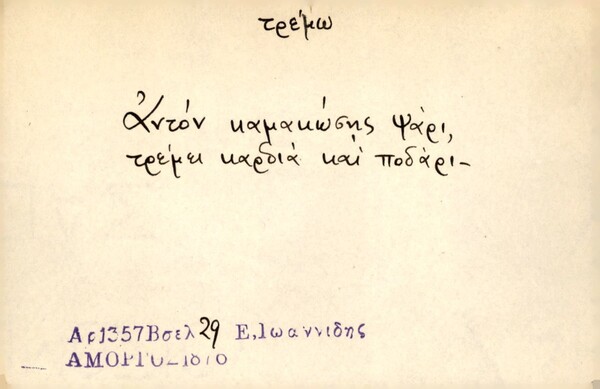 τρέμω
Ἀντόν καμακώσης ψάρι,
τρέμει καρδιά καί ποδάρι –
Αρ1357Βσελ 29 Ε,Ιωαννιδης
ΑΜΟΡΓΟΣ1876